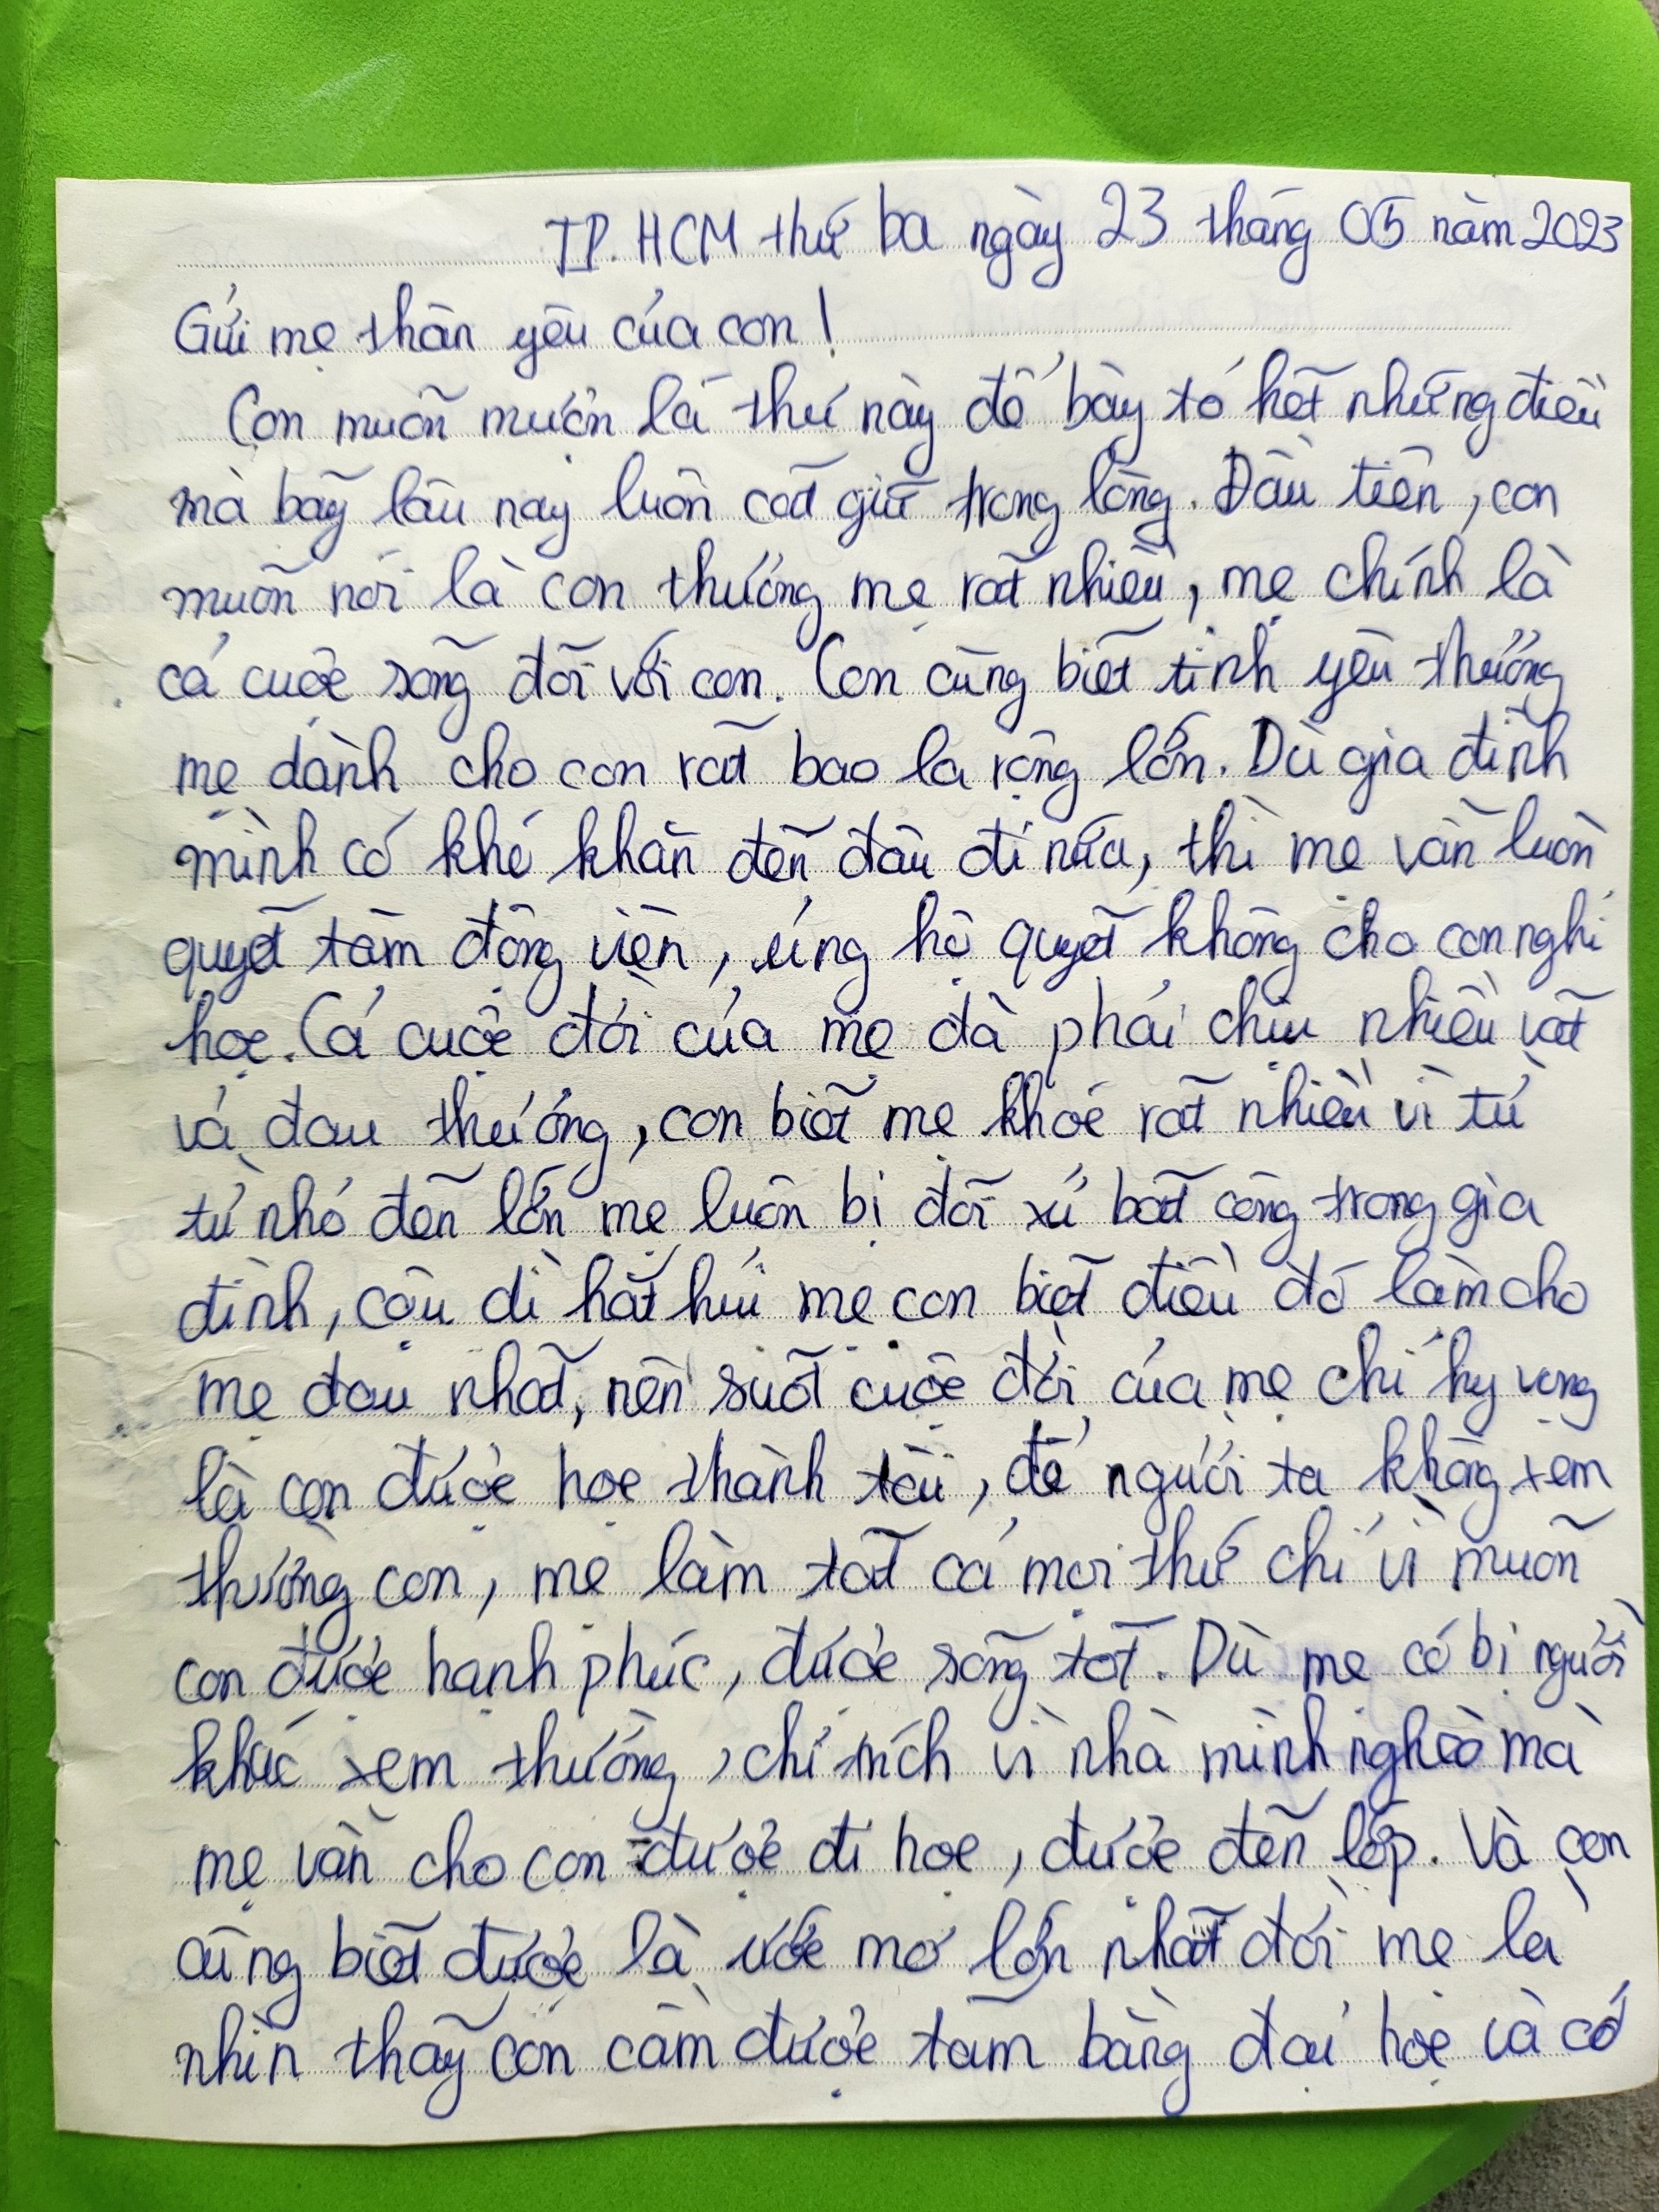 TP. HCM thứ ba ngày 23 tháng 05 năm 2023
Gửi mẹ thân yêu của con!
Con muốn mượn lá thư này để bày tỏ hết những điều
mà bấy lâu nay luôn cất giữ trong lòng. Đầu tiên, con
muốn nói là con thương mẹ rất nhiều, mẹ chính là
cả cuộc sống đối với con. Con cũng biết tình yêu thương
mẹ dành cho con rất bao la rộng lớn. Dù gia đình
mình có khó khăn đến đâu đi nữa, thì mẹ vẫn luôn
quyết tâm động viên, ủng hộ quyết không cho con nghỉ
học. Cả cuộc đời của mẹ đã phải chịu nhiều vất
vả đau thương, con biết mẹ khóc rất nhiều vì từ
từ nhỏ đến lớn mẹ luôn bị đối xử bất công trong gia
đình, cậu dì hắt hủi mẹ con biết điều đó làm cho
mẹ đau nhất, nên suốt cuộc đời của mẹ chỉ hy vọng
là con được học thành tài, để người ta không xem
thường con, mẹ làm tất cả mọi thứ chỉ vì muốn
con được hạnh phúc, được sống tốt. Dù mẹ có bị người
khác xem thường, chỉ trích vì nhà mình nghèo mà
mẹ vẫn cho con được đi học, được đến lớp. Và con
cũng biết được là ước mơ lớn nhất đời mẹ là
nhìn thấy con cầm được tấm bằng đại học và có